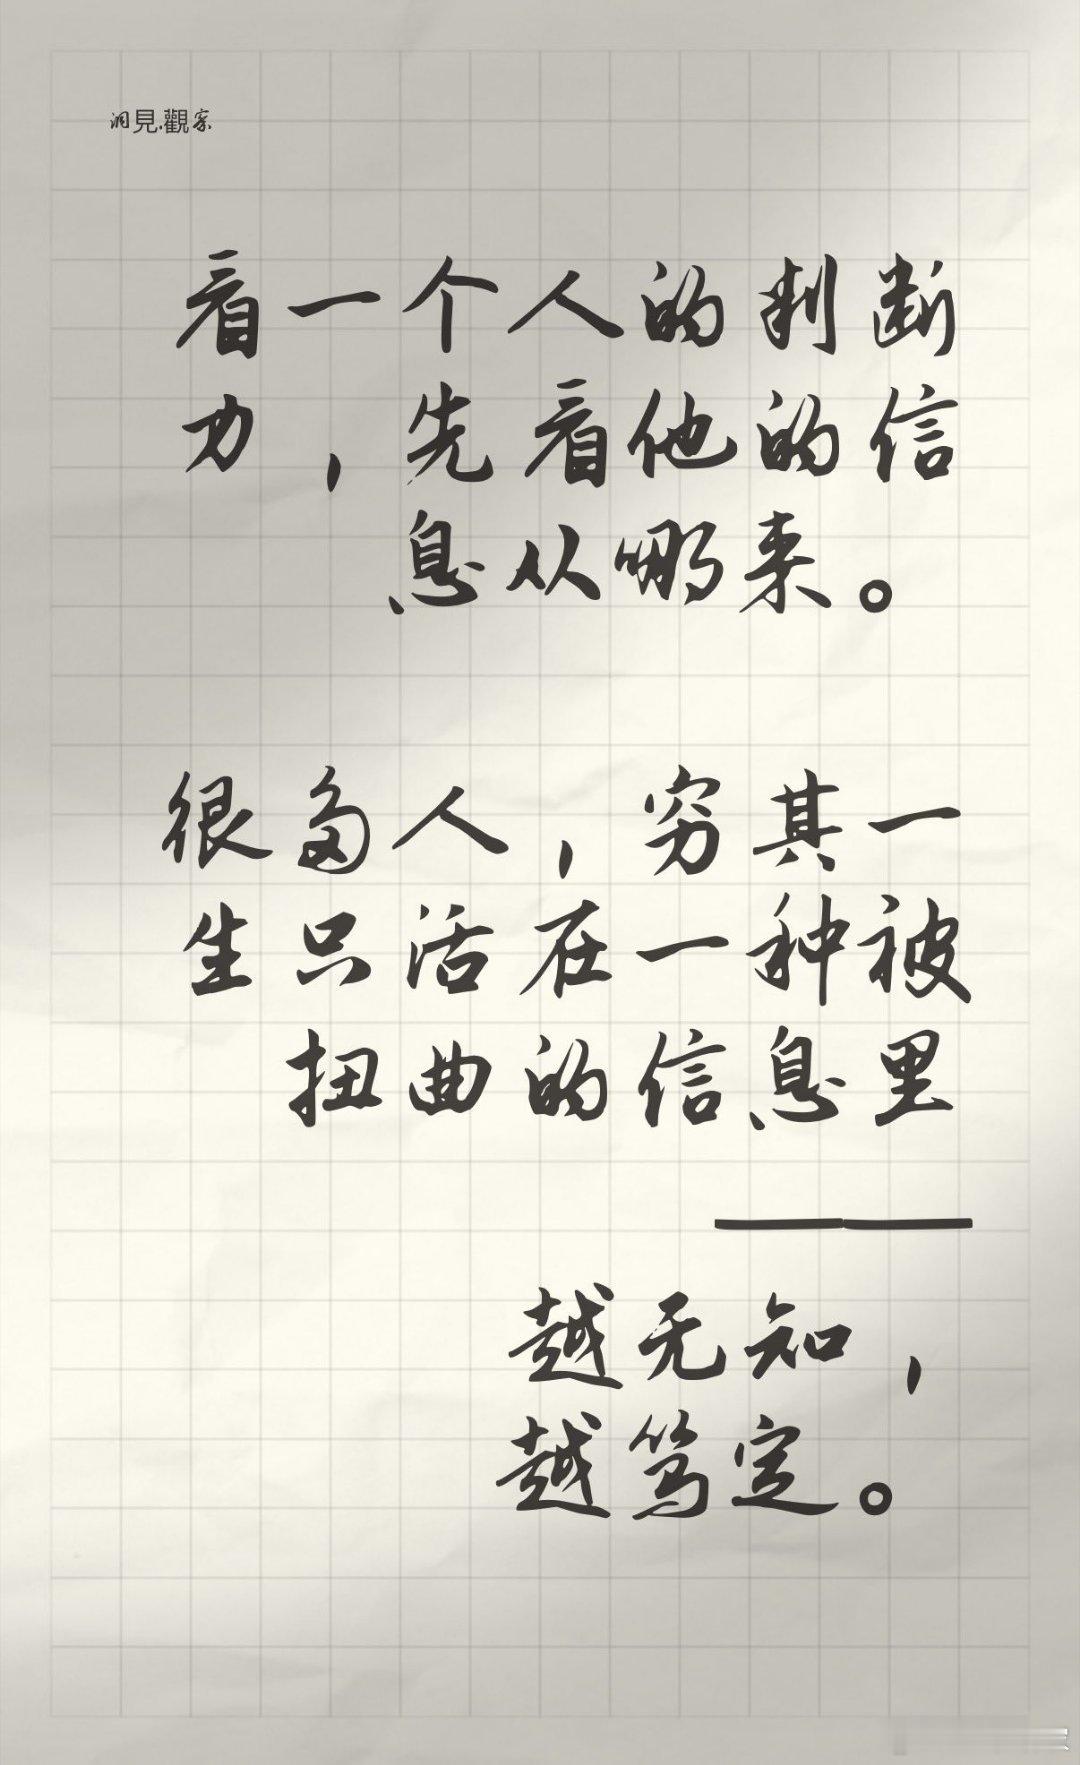 洞見.觀察
看一个人的判断
力，先看他的信
息从哪来。
很多人，穷其一
生只活在一种被
扭曲的信息里
——
越无知，
越笃定。